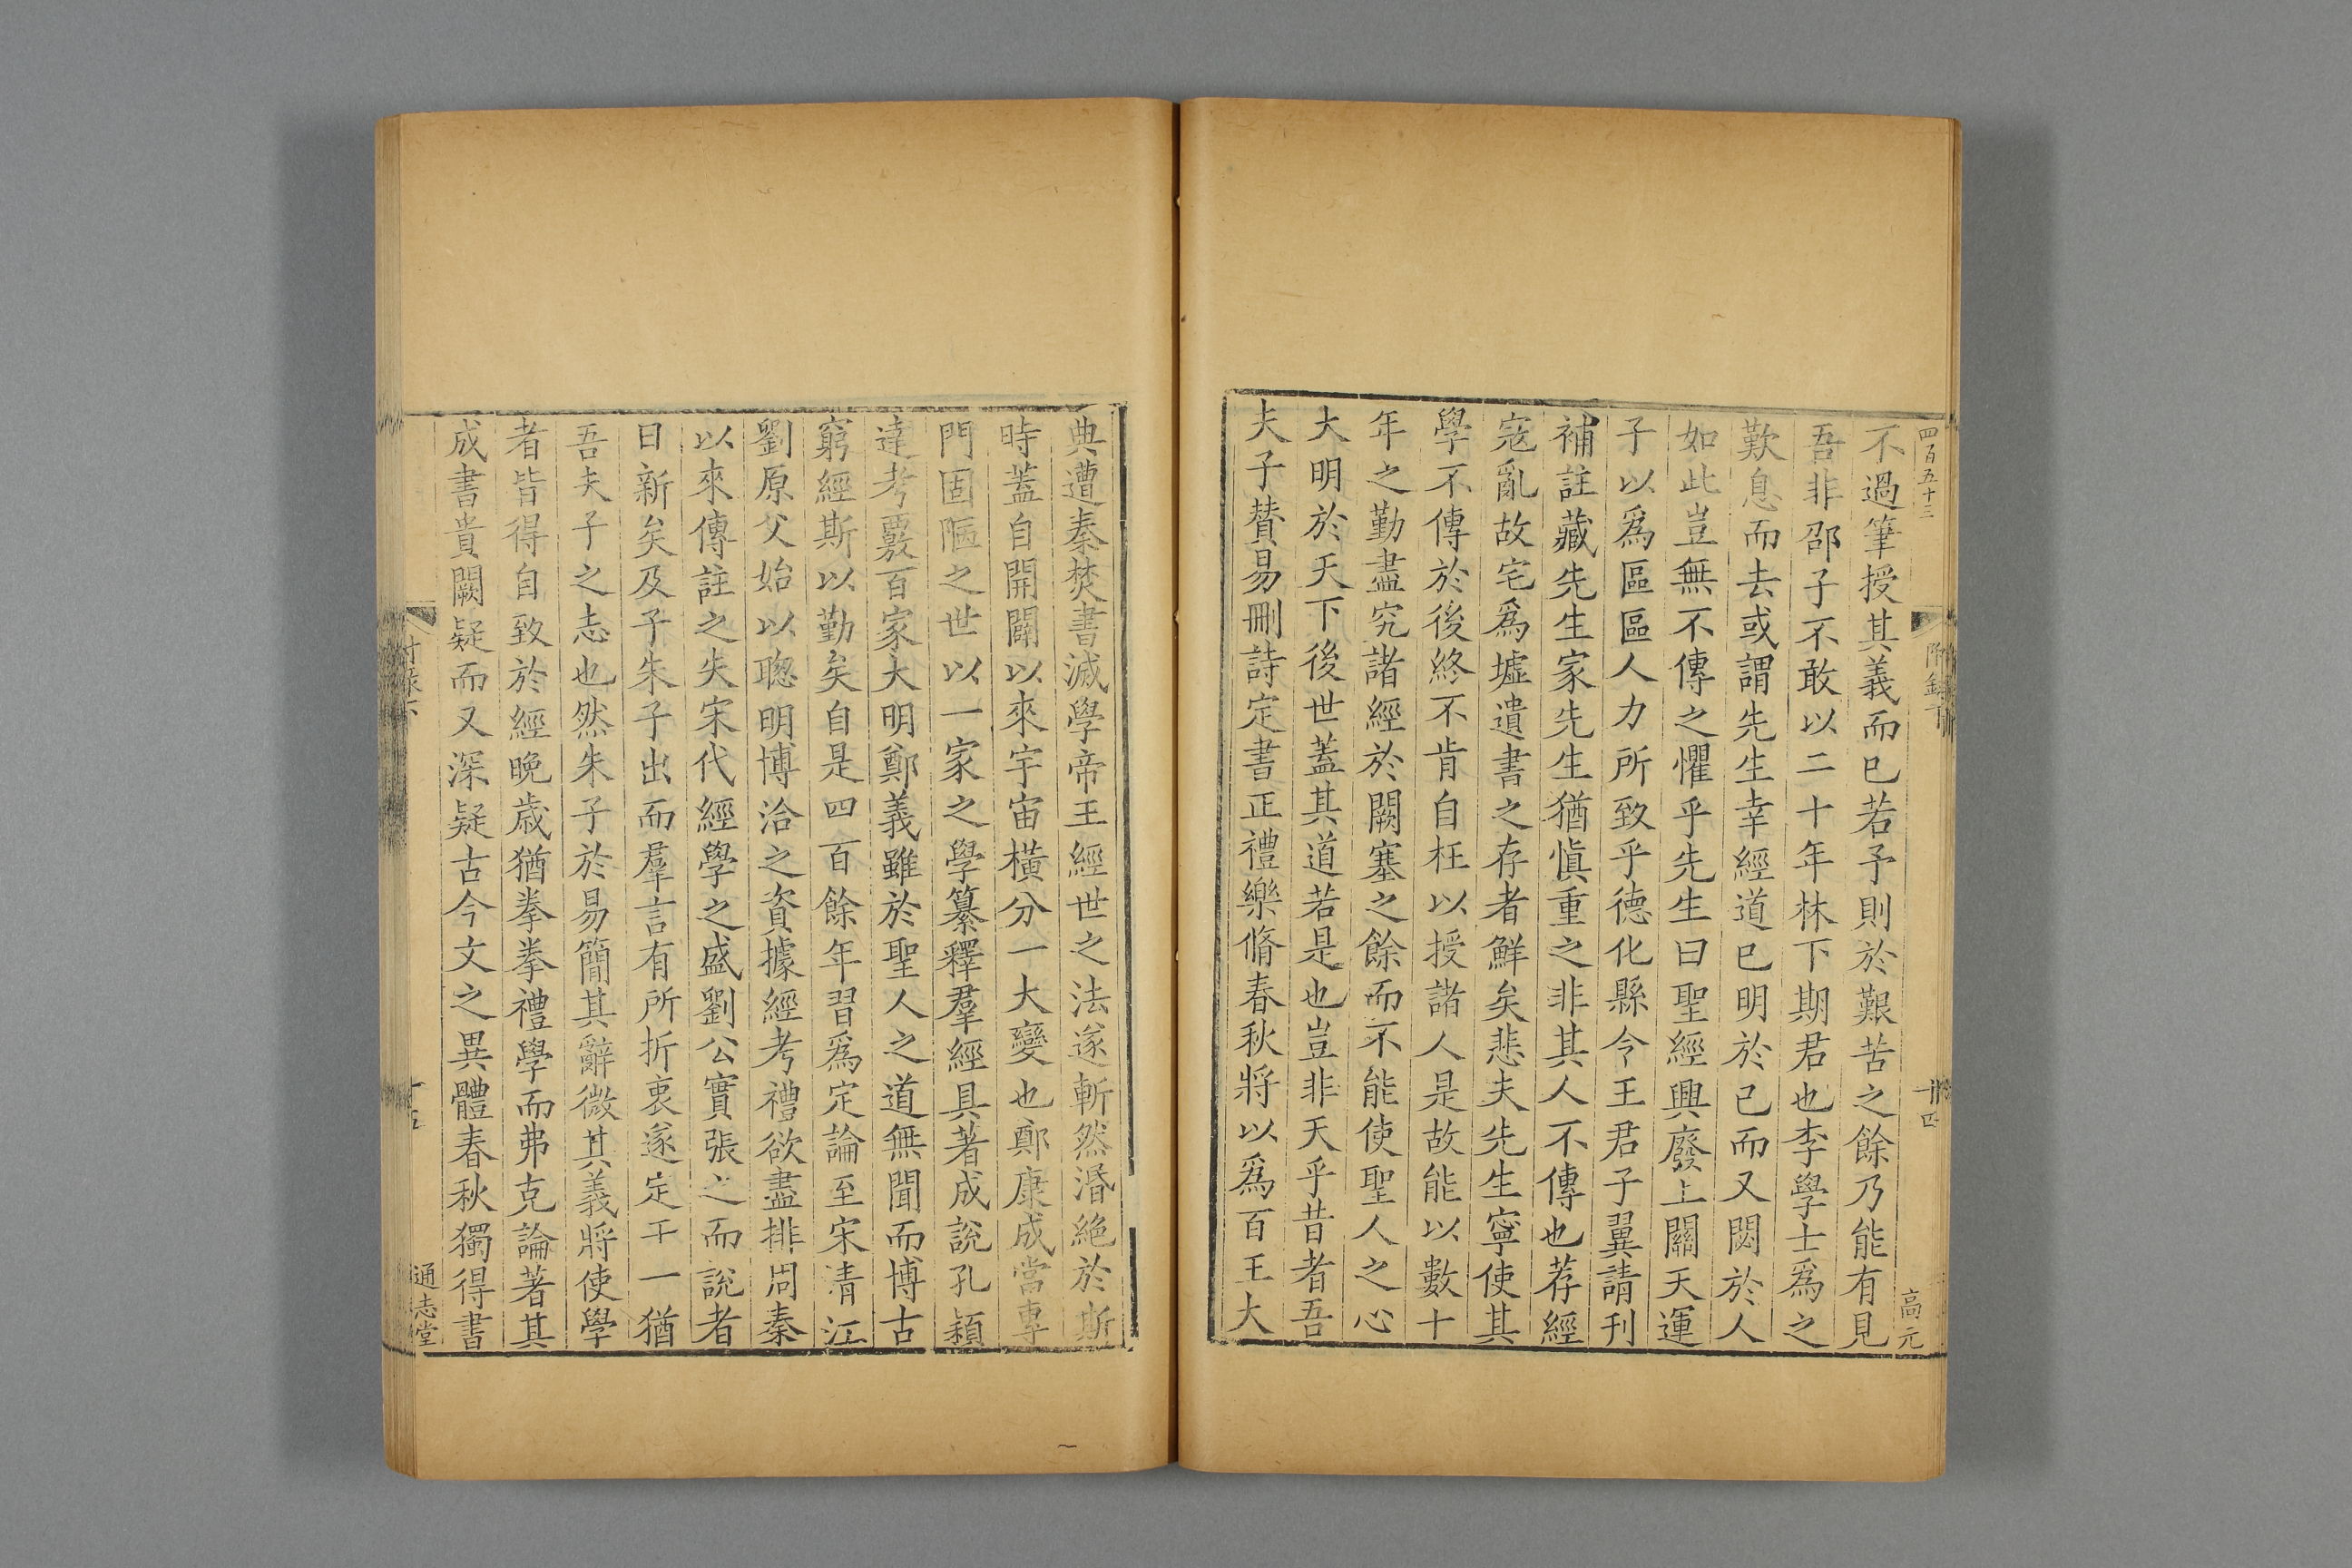 四百五十三
附錄下
十四
高元
不過筆授其義而已若予則於艱苦之餘乃能有見
吾非邵子不敢以二十年林下期君也李學士爲之
歎息而去或謂先生幸經道已明於己而又閟於人
如此豈無不傳之懼乎先生曰聖經興廢上關天運
子以爲區區人力所致乎德化縣令王君子翼請刊
補註藏先生家先生猶愼重之非其人不傳也荐經
寇亂故宅爲墟遺書之存者鮮矣悲夫先生寧使其
學不傳於後終不肯自枉以授諸人是故能以數十
年之勤盡究諸經於闕塞之餘而不能使聖人之心
大明於天下後世蓋其道若是也豈非天乎昔者吾
夫子贊易刪詩定書正禮樂脩春秋將以爲百王大
典遭秦焚書滅學帝王經世之法遂斬然湣絕於斯
時蓋自開闢以來宇宙橫分一大變也鄭康成當專
門固陋之世以一家之學纂釋羣經具著成說孔穎
達考覈百家大明鄭義雖於聖人之道無聞而博古
窮經斯以勤矣自是四百餘年習爲定論至宋清江
劉原父始以聰明博洽之資據經考禮欲盡排周秦
以來傳註之失宋代經學之盛劉公實張之而說者
日新矣及子朱子出而羣言有所折衷遂定于一猶
吾夫子之志也然朱子於易簡其辭微其義將使學
者皆得自致於經晚歲猶拳拳禮學而弗克論著其
成書貴闕疑而又深疑古今文之異體春秋獨得書
通志堂